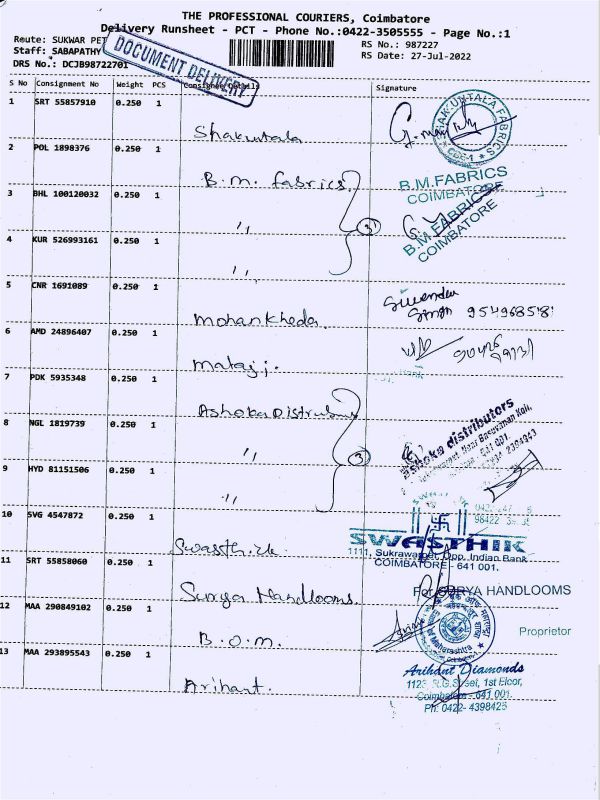 THE PROFESSIONAL COURIERS, Coimbatore
Delivery Runsheet - PCT - Phone No.:0422-3505555 - Page No.:1
Route: SUKWAR PET
RS No.: 987227
Staff: SABAPATHY
RS Date: 27-Jul-2022
DRS No.: DCJB98722701
DOCUMENT DELIVERY
S No Consignment No Weight PCS Consignee Details Signature
1 SRT 55857910 0.250 1
Shakuntala
SHAKUNTALA FABRICS
CBE-1
2 POL 1898376 0.250 1
B.M. fabrics
B.M.FABRICS
COIMBATORE
3 BHL 100120032 0.250 1
,,
3
B.M FABRICS
COIMBATORE
4 KUR 526993161 0.250 1
,,
5 CNR 1691089 0.250 1
Mohankheda
6 AMD 24896407 0.250 1
Mataji.
7 PDK 5935348 0.250 1
Ashoka
8 NGL 1819739 0.250 1
,,
3
Ashoka distributors
9 HYD 81151506 0.250 1
,,
10 SVG 4547872 0.250 1
Swassthik
SWASTHIK
1111, Sukrawarpet, Opp. Indian Bank
COIMBATORE - 641 001.
11 SRT 55858060 0.250 1
Surya Handlooms
For SURYA HANDLOOMS
Proprietor
12 MAA 290849102 0.250 1
B.O.M.
13 MAA 293895543 0.250 1
Arihant.
Arihant Diamonds
1st Floor,
Coimbatore - 641 001.
Ph: 0422- 4398425